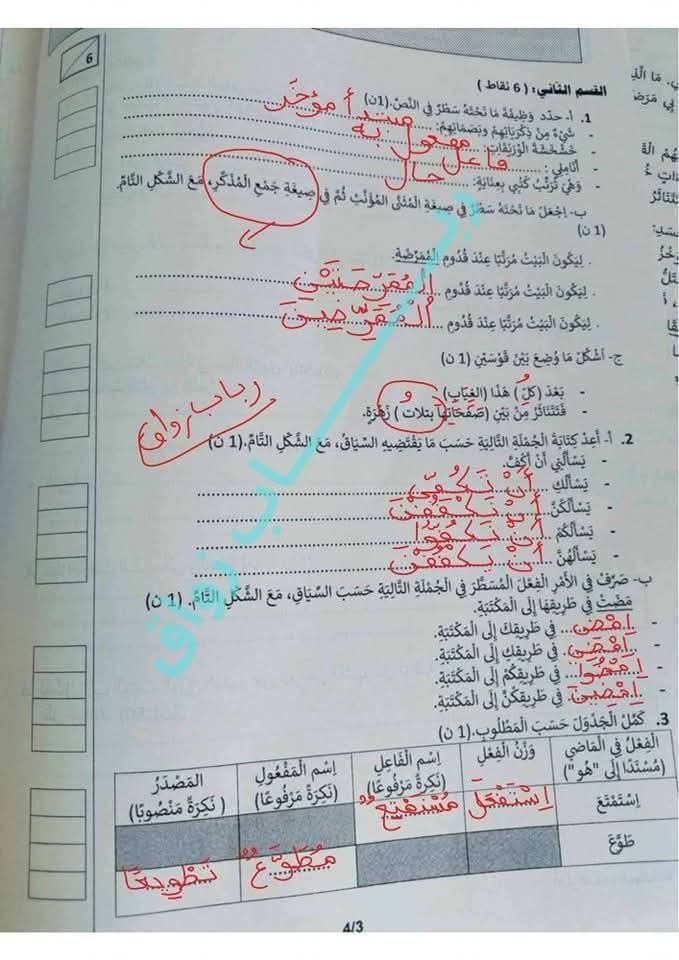 6
القسم الثاني: ( 6 نقاط )
1. أ- حدّد وَظِيفَةَ مَا تَحْتَهُ سَطْرٌ فِي النَّصّ.(1ن)
- شَيْءٌ مِنْ ذِكْرَيَاتِهِمْ وَبَصَمَاتِهِمْ: مبتدأ مؤخّر
- خَشْخَشَةَ الْوُرَيْقَاتِ: مفعول به
- أَنَامِلِي: فاعل
- وَهْيَ تُرَتِّبُ كُتُبِي بِعِنَايَةٍ: حال
ب- اِجْعَلْ مَا تَحْتَهُ سَطْرٌ فِي صِيغَةِ الْمُثَنَّى الْمُؤَنَّثِ ثُمَّ فِي صِيغَةِ جَمْعِ الْمُذَكَّرِ، مَعَ الشَّكْلِ التَّامّ.
(1 ن)
. لِيَكُونَ الْبَيْتُ مُرَتَّبًا عِنْدَ قُدُومِ الْمُمَرِّضَةِ.
. لِيَكُونَ الْبَيْتُ مُرَتَّبًا عِنْدَ قُدُومِ
. لِيَكُونَ الْبَيْتُ مُرَتَّبًا عِنْدَ قُدُومِ
ج- اُشْكُلْ مَا وُضِعَ بَيْنَ قَوْسَيْنِ (1 ن)
- بَعْدَ (كلُّ) هَذَا (الغِيَاب)
- فَتَتَنَاثَرُ مِنْ بَيْنِ (صَفَحَاتِهَا بتلات ) زَهْرَةٍ.
رباب زواق
2. أ- أَعِدْ كِتَابَةَ الْجُمْلَةِ التَّالِيَةِ حَسَبَ مَا يَقْتَضِيهِ السِّيَاقُ، مَعَ الشَّكْلِ التَّامّ.(1 ن)
- يَسْأَلُنِي أَنْ أَكُفَّ.
- يَسْأَلُكِ أَنْ تَكُفِّي
- يَسْأَلُكُنَّ أَنْ تَكْفُفْنَ
- يَسْأَلُكُمْ أَنْ تَكُفُّوا
- يَسْأَلُهُنَّ أَنْ يَكْفُفْنَ
ب- صَرِّفْ فِي الأَمْرِ الْفِعْلَ الْمُسَطَّرَ فِي الْجُمْلَةِ التَّالِيَةِ حَسَبَ السِّيَاقِ، مَعَ الشَّكْلِ التَّامّ. (1 ن)
مَضَتْ فِي طَرِيقِهَا إِلَى الْمَكْتَبَةِ.
- اِمْضِ فِي طَرِيقِكَ إِلَى الْمَكْتَبَةِ.
- اِمْضِي فِي طَرِيقِكِ إِلَى الْمَكْتَبَةِ.
- اِمْضُوا فِي طَرِيقِكُمْ إِلَى الْمَكْتَبَةِ.
- اِمْضِينَ فِي طَرِيقِكُنَّ إِلَى الْمَكْتَبَةِ.
3. كَمِّلْ الْجَدْوَلَ حَسَبَ الْمَطْلُوبِ.(1 ن)
الْفِعْلُ فِي الْمَاضِي (مُسْنَدًا إِلَى "هُوَ") وَزْنُ الْفِعْلِ اِسْمُ الْفَاعِلِ (نَكِرَةً مَرْفُوعًا) اِسْم الْمَفْعُولِ (نَكِرَةً مَرْفُوعًا) الْمَصْدَرُ ( نَكِرَةً مَنْصُوبًا)
اِسْتَمْتَعَ اِسْتَفْعَلَ مُسْتَمْتِعٌ
طَوَّعَ مُطَوَّعٌ تَطْوِيعًا
4/3
ربـــاب زواق